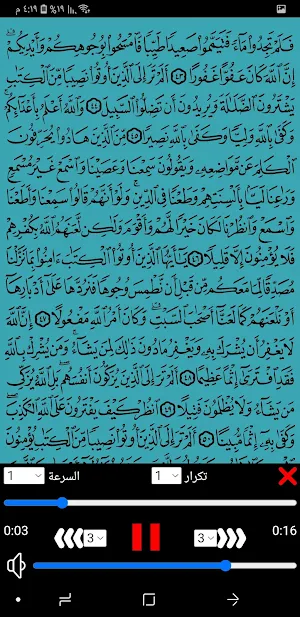 ٤:١٩ م ١٩%
فَلَمْ تَجِدُوا۟ مَآءً فَتَيَمَّمُوا۟ صَعِيدًا طَيِّبًا فَٱمْسَحُوا۟ بِوُجُوهِكُمْ وَأَيْدِيكُمْ
إِنَّ ٱللَّهَ كَانَ عَفُوًّا غَفُورًا ٤٣ أَلَمْ تَرَ إِلَى ٱلَّذِينَ أُوتُوا۟ نَصِيبًا مِّنَ ٱلْكِتَٰبِ
يَشْتَرُونَ ٱلضَّلَٰلَةَ وَيُرِيدُونَ أَن تَضِلُّوا۟ ٱلسَّبِيلَ ٤٤ وَٱللَّهُ أَعْلَمُ بِأَعْدَآئِكُمْ
وَكَفَىٰ بِٱللَّهِ وَلِيًّا وَكَفَىٰ بِٱللَّهِ نَصِيرًا ٤٥ مِّنَ ٱلَّذِينَ هَادُوا۟ يُحَرِّفُونَ
ٱلْكَلِمَ عَن مَّوَاضِعِهِۦ وَيَقُولُونَ سَمِعْنَا وَعَصَيْنَا وَٱسْمَعْ غَيْرَ مُسْمَعٍ
وَرَٰعِنَا لَيًّۢا بِأَلْسِنَتِهِمْ وَطَعْنًا فِى ٱلدِّينِ وَلَوْ أَنَّهُمْ قَالُوا۟ سَمِعْنَا وَأَطَعْنَا
وَٱسْمَعْ وَٱنظُرْنَا لَكَانَ خَيْرًا لَّهُمْ وَأَقْوَمَ وَلَٰكِن لَّعَنَهُمُ ٱللَّهُ بِكُفْرِهِمْ
فَلَا يُؤْمِنُونَ إِلَّا قَلِيلًا ٤٦ يَٰٓأَيُّهَا ٱلَّذِينَ أُوتُوا۟ ٱلْكِتَٰبَ ءَامِنُوا۟ بِمَا نَزَّلْنَا
مُصَدِّقًا لِّمَا مَعَكُم مِّن قَبْلِ أَن نَّطْمِسَ وُجُوهًا فَنَرُدَّهَا عَلَىٰٓ أَدْبَارِهَآ
أَوْ نَلْعَنَهُمْ كَمَا لَعَنَّآ أَصْحَٰبَ ٱلسَّبْتِ وَكَانَ أَمْرُ ٱللَّهِ مَفْعُولًا ٤٧ إِنَّ ٱللَّهَ
لَا يَغْفِرُ أَن يُشْرَكَ بِهِۦ وَيَغْفِرُ مَا دُونَ ذَٰلِكَ لِمَن يَشَآءُ وَمَن يُشْرِكْ بِٱللَّهِ
فَقَدِ ٱفْتَرَىٰٓ إِثْمًا عَظِيمًا ٤٨ أَلَمْ تَرَ إِلَى ٱلَّذِينَ يُزَكُّونَ أَنفُسَهُم بَلِ ٱللَّهُ يُزَكِّى
مَن يَشَآءُ وَلَا يُظْلَمُونَ فَتِيلًا ٤٩ ٱنظُرْ كَيْفَ يَفْتَرُونَ عَلَى ٱللَّهِ ٱلْكَذِبَ
وَكَفَىٰ بِهِۦٓ إِثْمًا مُّبِينًا ٥٠ أَلَمْ تَرَ إِلَى ٱلَّذِينَ أُوتُوا۟ نَصِيبًا مِّنَ ٱلْكِتَٰبِ يُؤْمِنُونَ
تكرار 1 السرعة 1
0:03 3 3 0:16